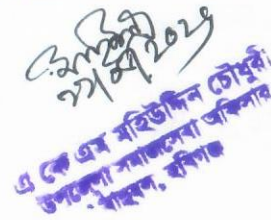 ২২/০৫/২০২৪
এ কে এম মহিউদ্দিন চৌধুরী
উপজেলা সমাজসেবা অফিসার
বাহুবল, হবিগঞ্জ